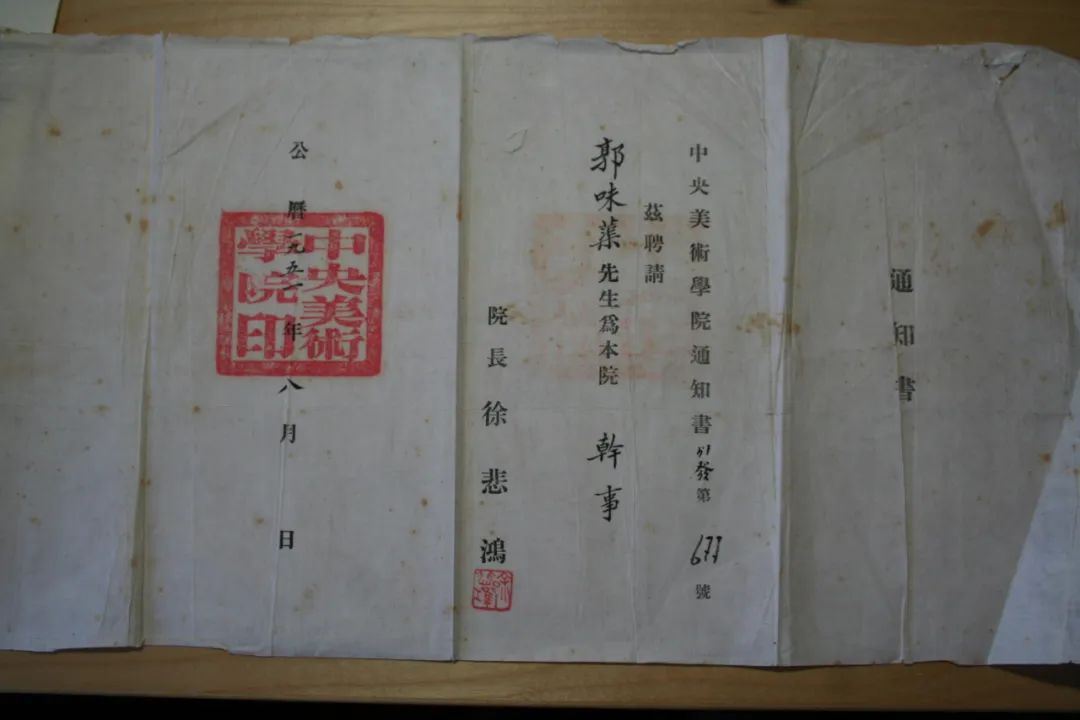 通知書
中央美術學院通知書51發第677號
茲聘請
郭味蕖先生為本院 幹事
院長徐悲鴻
公曆一九五一年八月 日
中央美術學院印